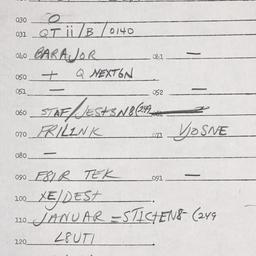 030 O
031 QT ii/B/0140
040 BARAJOR 041 —
050 + Q NEXT6N
051 — 052 —
060 STAF/JESTSN8(249
070 FRILINK 071 VJOSNE
080 —
090 F8IR TEK 091 —
100 XE/DEST
110 JANUAR =STICTEN8-(249
120 L8UTI